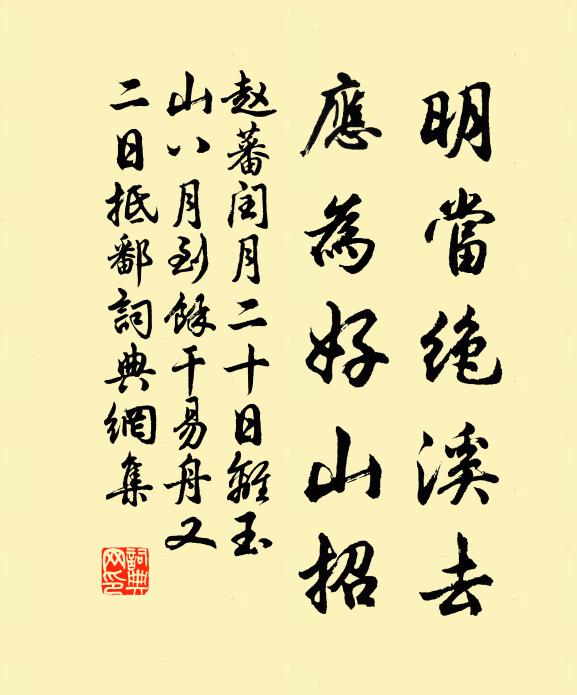 明當絶溪去
應為好山招
赵蕃閏月二十日離玉
山八月到餘干易舟又
二日抵鄱詞典網集
詞典网印